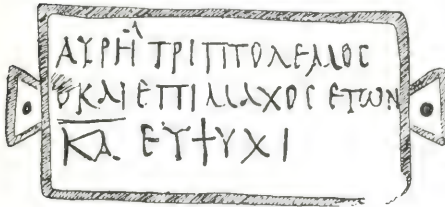 ΑΥΡΗΛ ΤΡΙΠΤΟΛΕΜΟϹ
ΟΚΑΙΕΠΙΜΑΧΟϹΕΤΩΝ
ΚΑ. ΕΥΨΥΧΙ